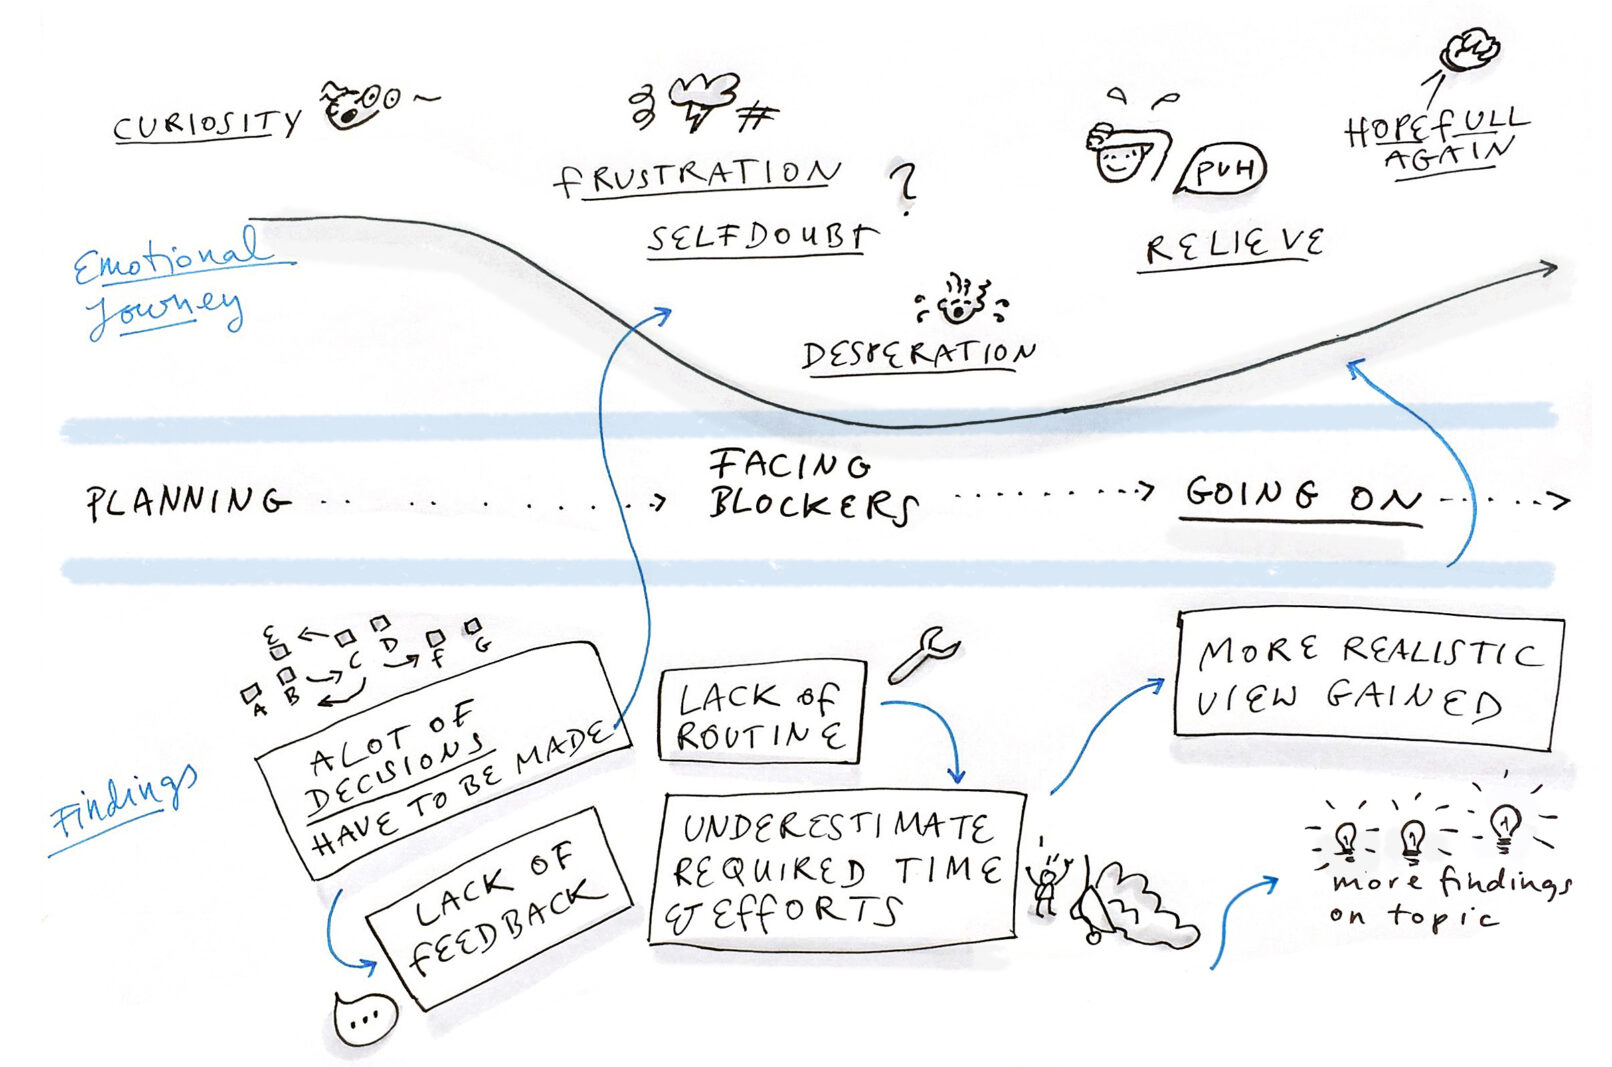 CURIOSITY
#
FRUSTRATION
?
SELFDOUBT
PUH
HOPEFULL
AGAIN
RELIEVE
Emotional
Journey
DESPERATION
PLANNING
FACING
BLOCKERS
GOING ON
E
D
C
F
G
A
B
A LOT OF
DECISIONS
HAVE TO BE MADE
LACK OF
FEEDBACK
...
Findings
LACK OF
ROUTINE
UNDERESTIMATE
REQUIRED TIME
& EFFORTS
MORE REALISTIC
VIEW GAINED
more findings
on topic